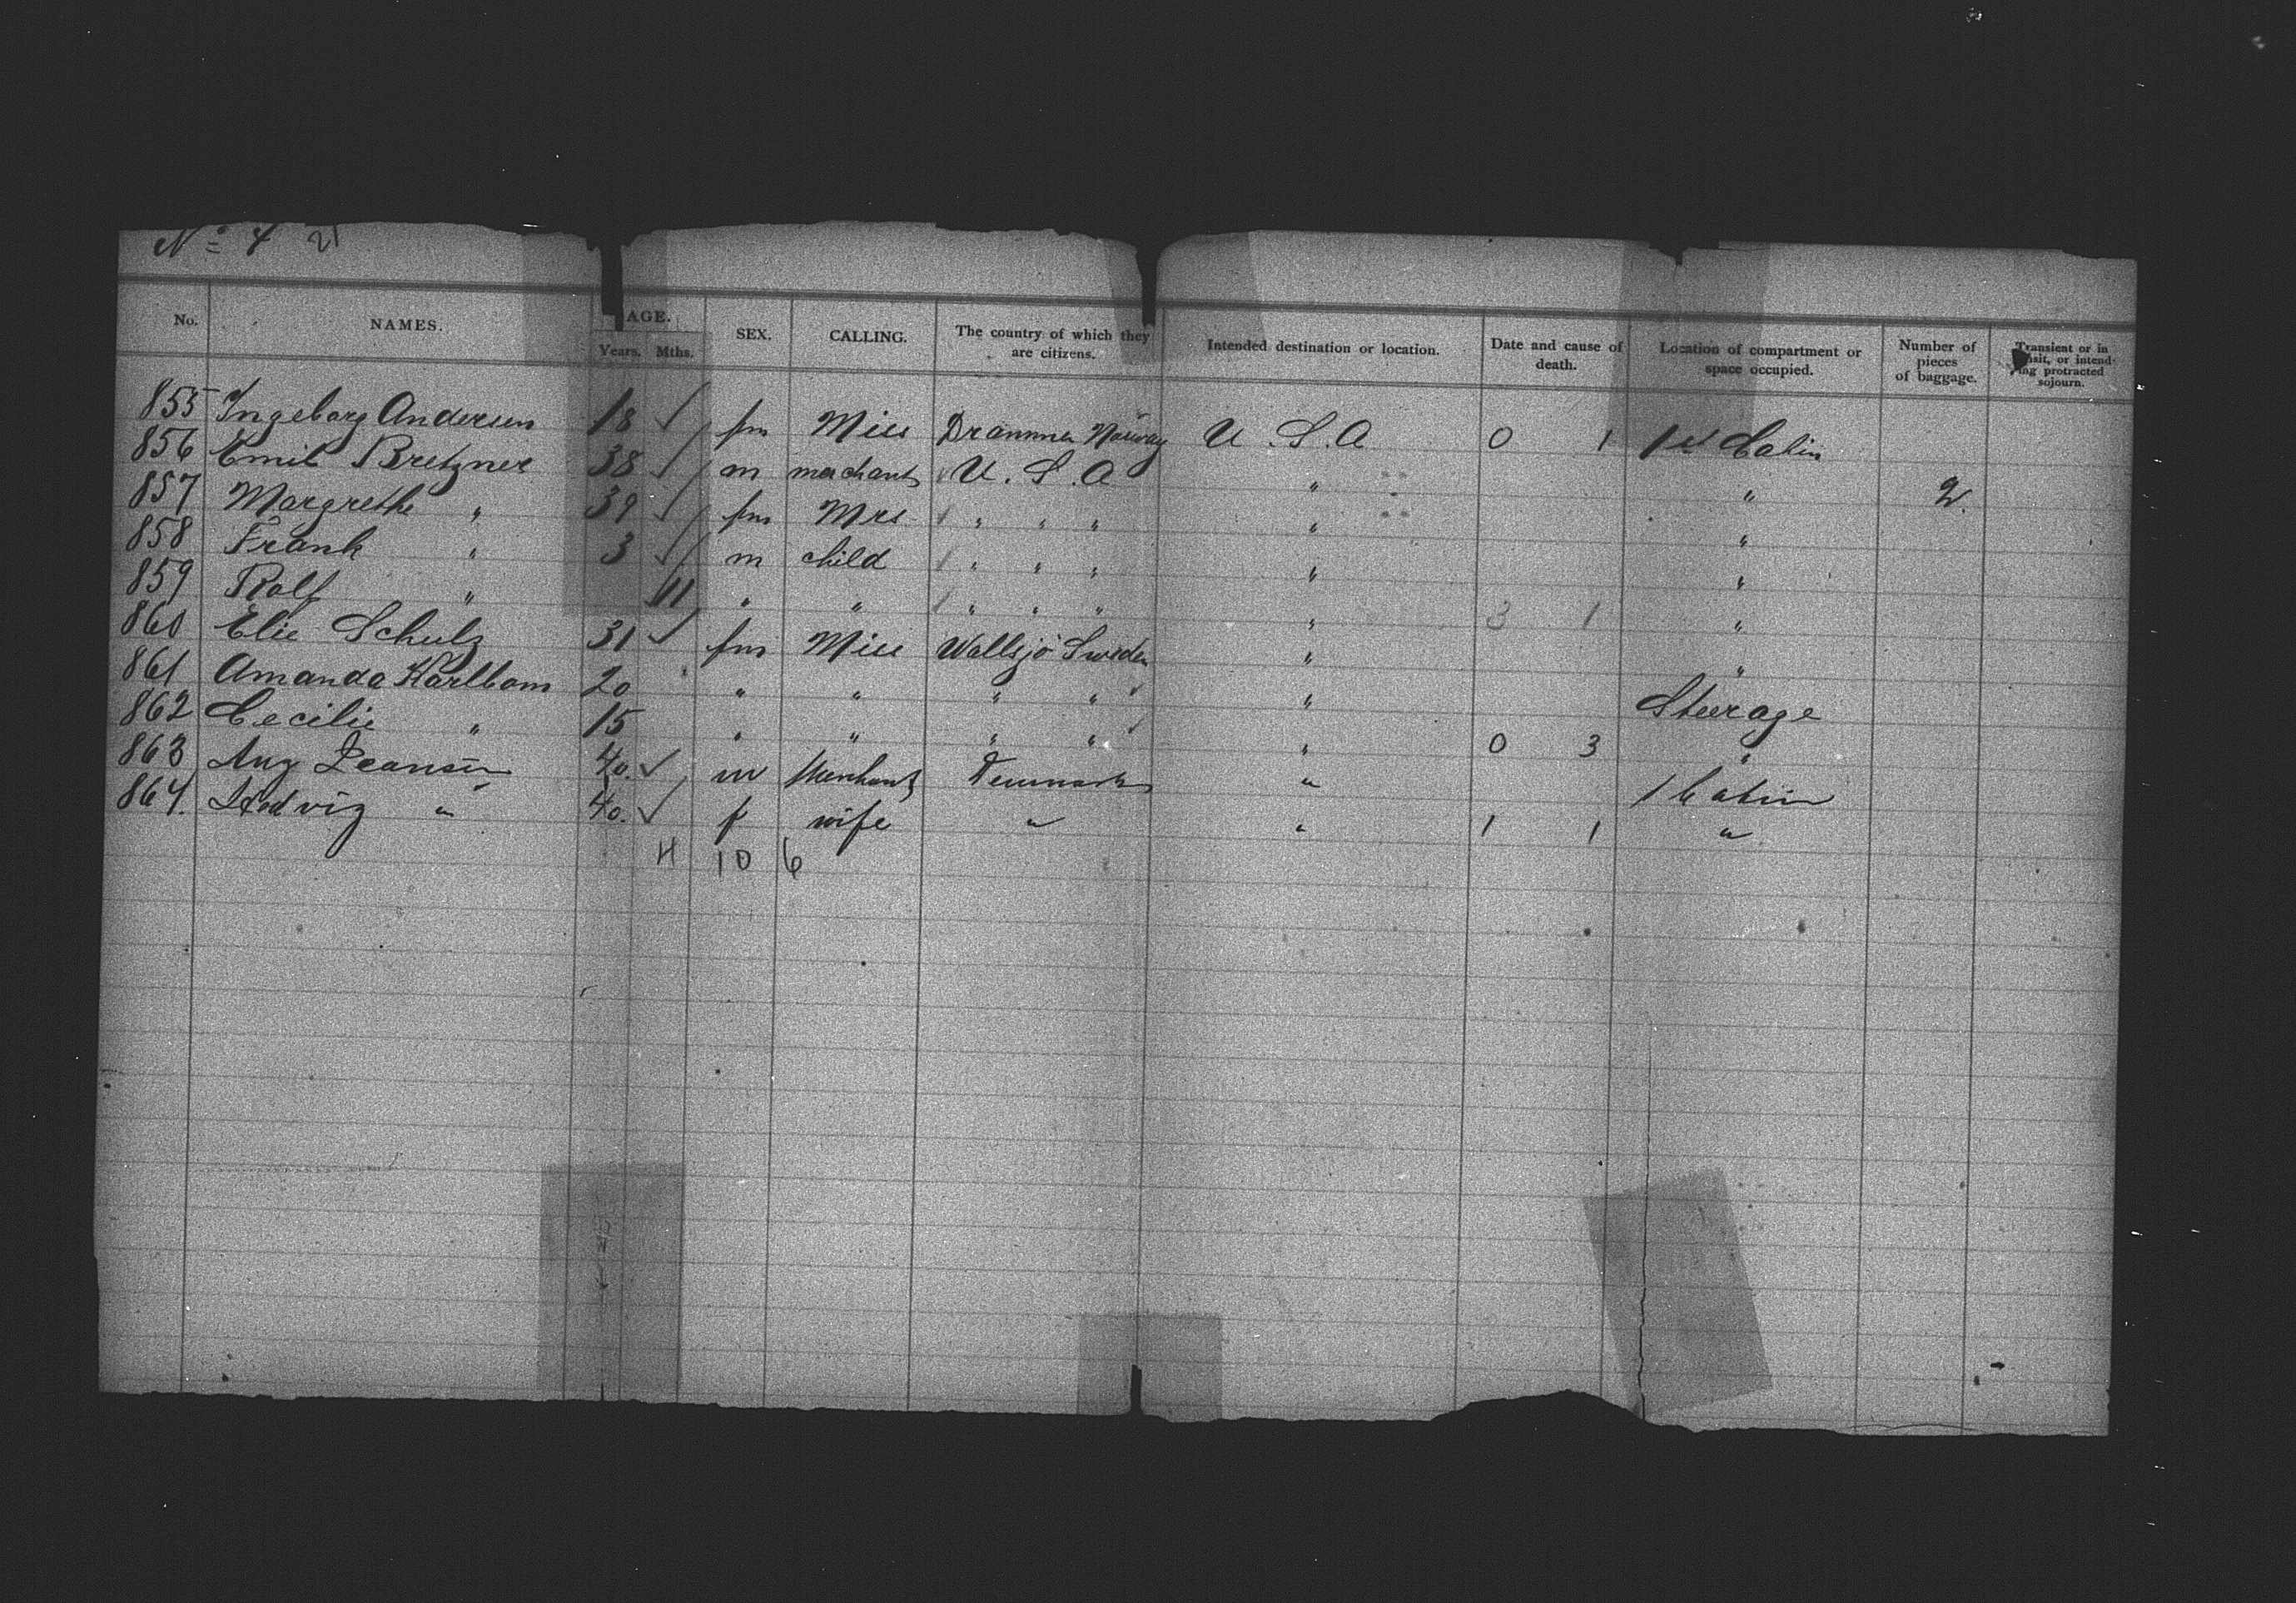 No 4 21
No. NAMES. AGE. Years. Mths. SEX. CALLING. The country of which they are citizens. Intended destination or location. Date and cause of death. Location of compartment or space occupied. Number of pieces of baggage. Transient or in transit, or intending protracted sojourn.
855 Ingeborg Andersen 18 ✓ fm Miss Drammen Norway U.S.A 0 1 1st Cabin
856 Emil Bretzner 38 ✓ m merchant U.S.A " " 2
857 Margrethe " 39 ✓ fm Mrs " " " " "
858 Frank " 3 ✓ m child " " " " "
859 Rolf " 11 " " " " " " 3 1 "
860 Elie Schulz 31 ✓ fm Miss Wallsjö Sweden " "
861 Amanda Karlbom 20 " " " " ✓ " Steerage
862 Cecilie " 15 " " " " ✓ " 0 3 "
863 Aug 40. ✓ m Merchant Denmark " 1 Cabin
864. Hedvig " 40. ✓ f wife " " 1 1 "
H 10 6